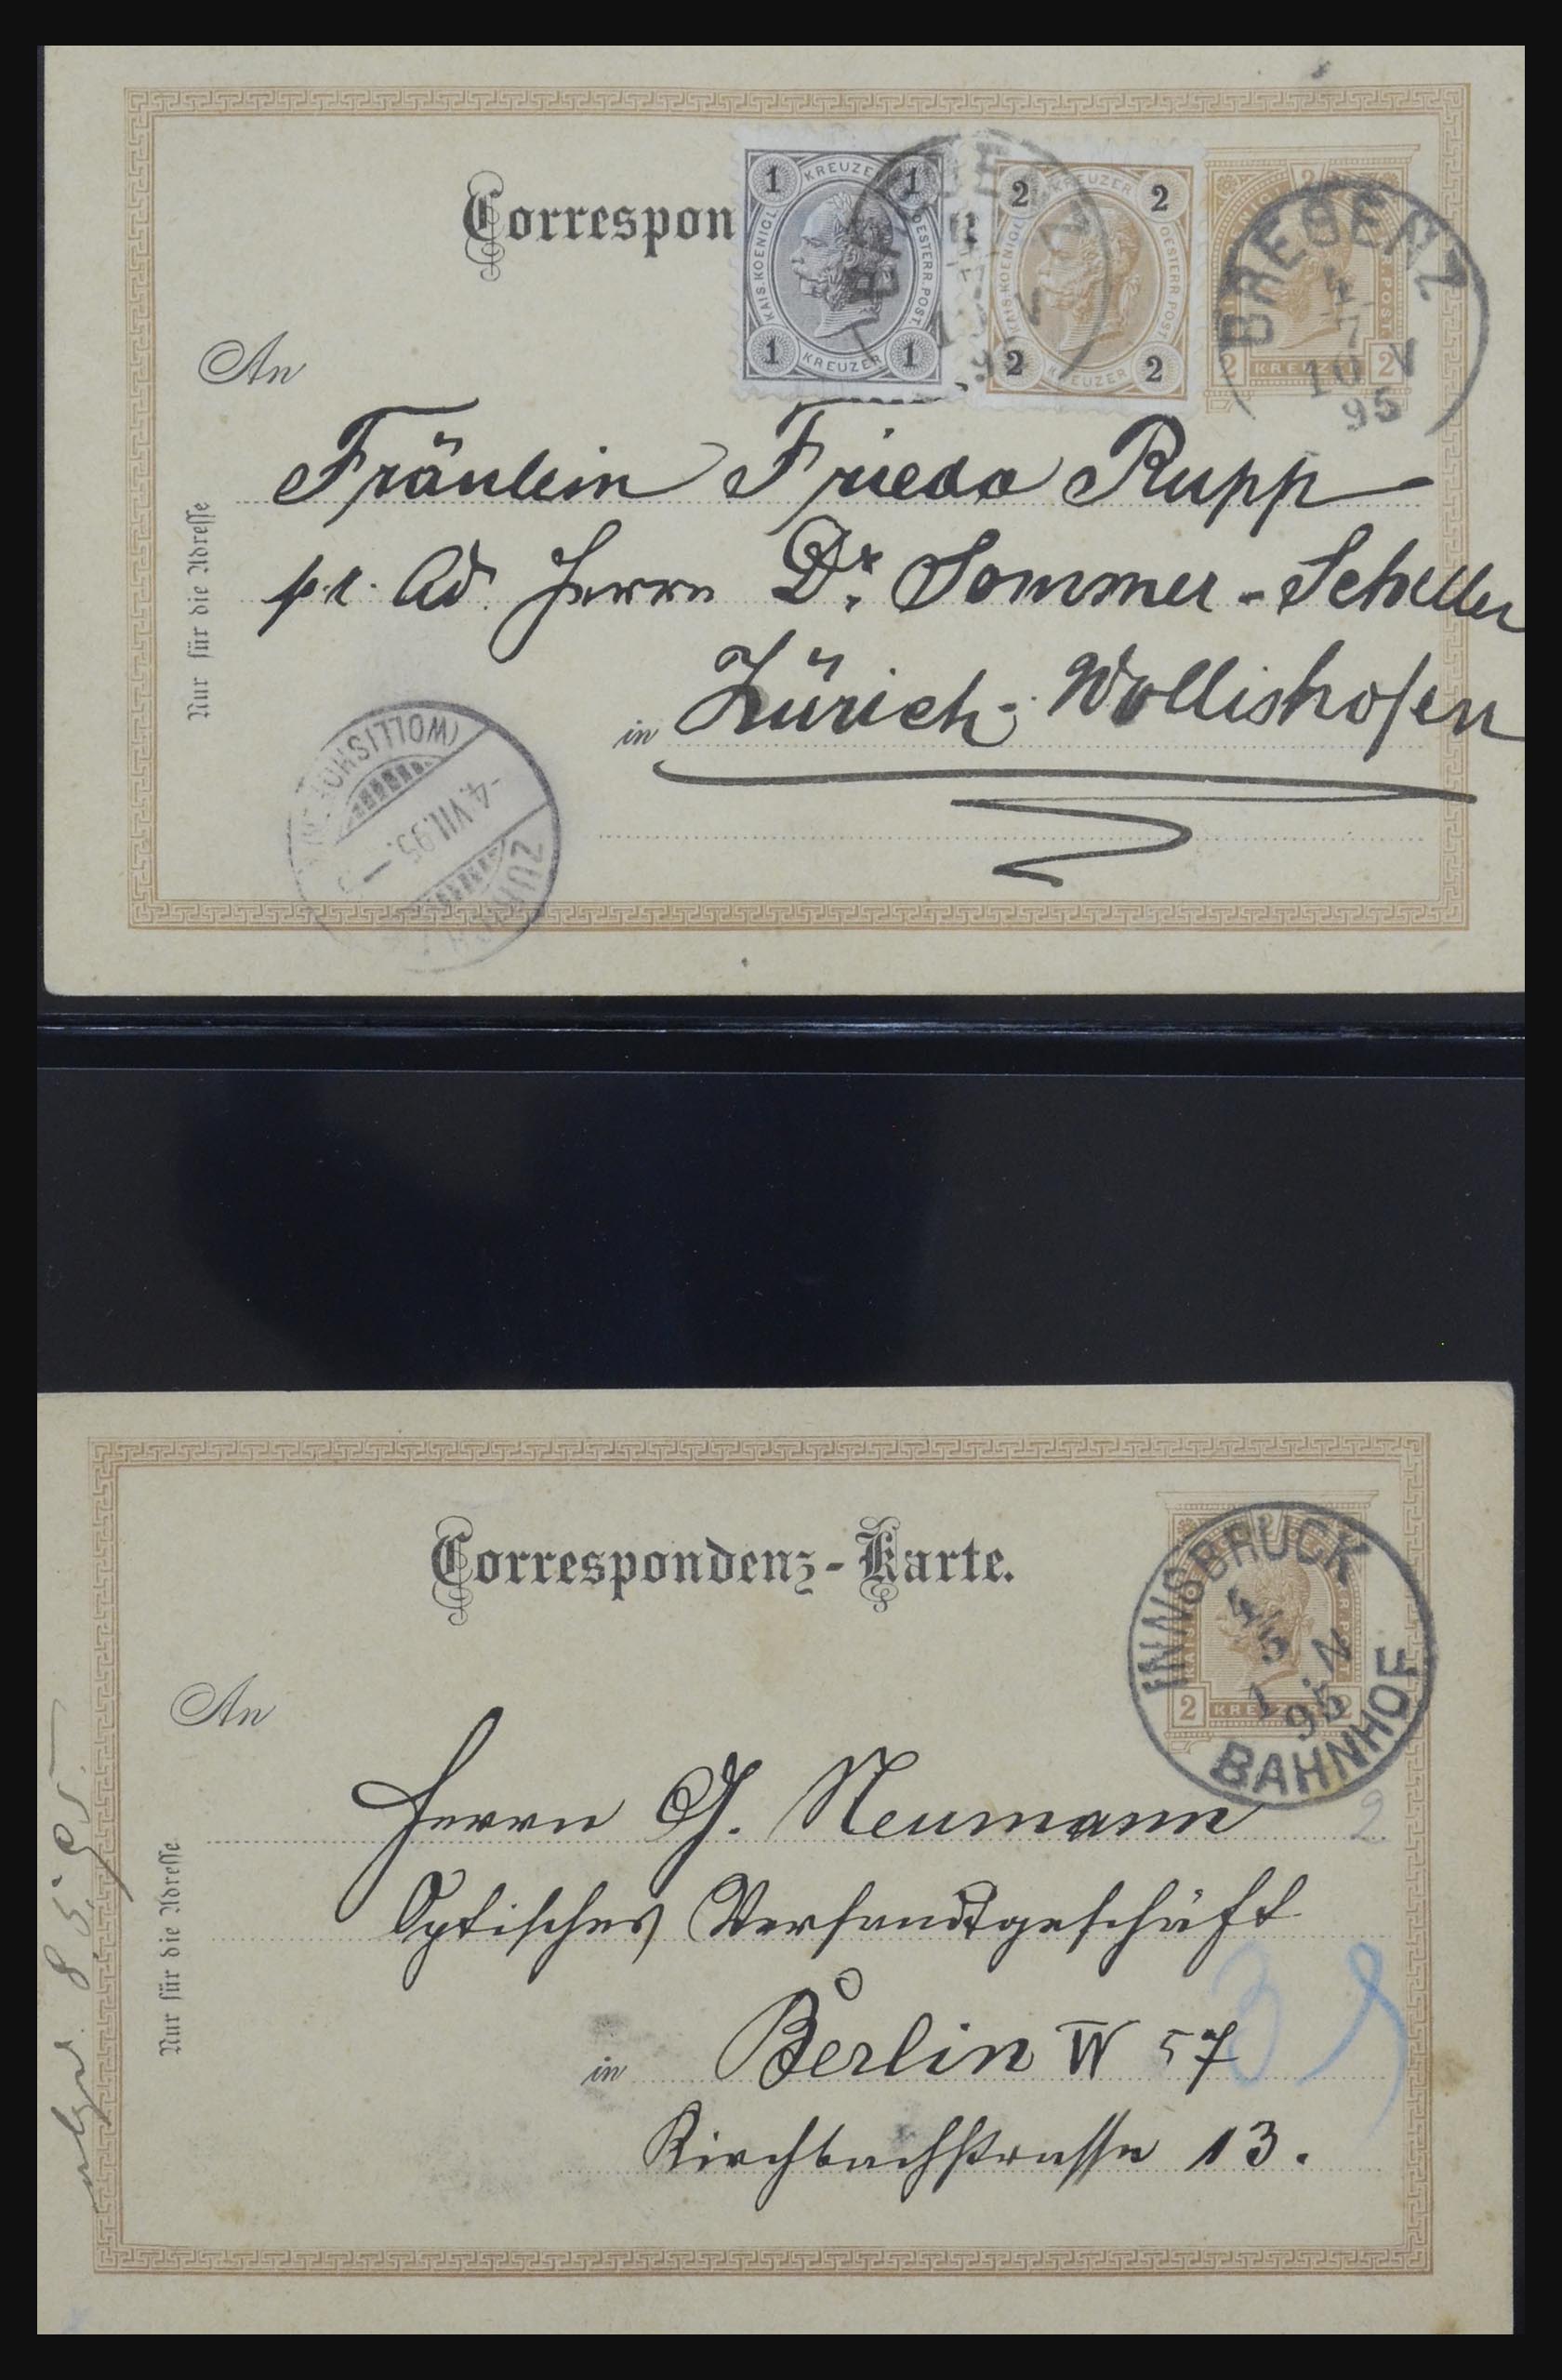 Correspon
1 KREUZER 1
KAIS. KOENIGL. OESTERR. POST
1 KREUZER 1
2 KREUZER 2
KAIS. KOENIGL. OESTERR. POST
2 KREUZER 2
2
R. POST
2 KREUZER 2
BREGENZ
BREGENZ
4
7
10 V
95
An
Fräulein Frieda Rupp
pr. Ad. Herrn Dr. Sommer-Scheller
in Zürich-Wollishofen
Nur für die Adresse
ZÜRICH
-4.VII.95.-
(WOLLISHOFEN)
Correspondenz-Karte.
2 KREUZER 2
INNSBRUCK
4/5
1 N
95
BAHNHOF
An
Herrn G. Neumann
2
Optisches Versandtgeschäft
in Berlin W 57
Kirchbachstrasse 13.
Nur für die Adresse
8.5.95.